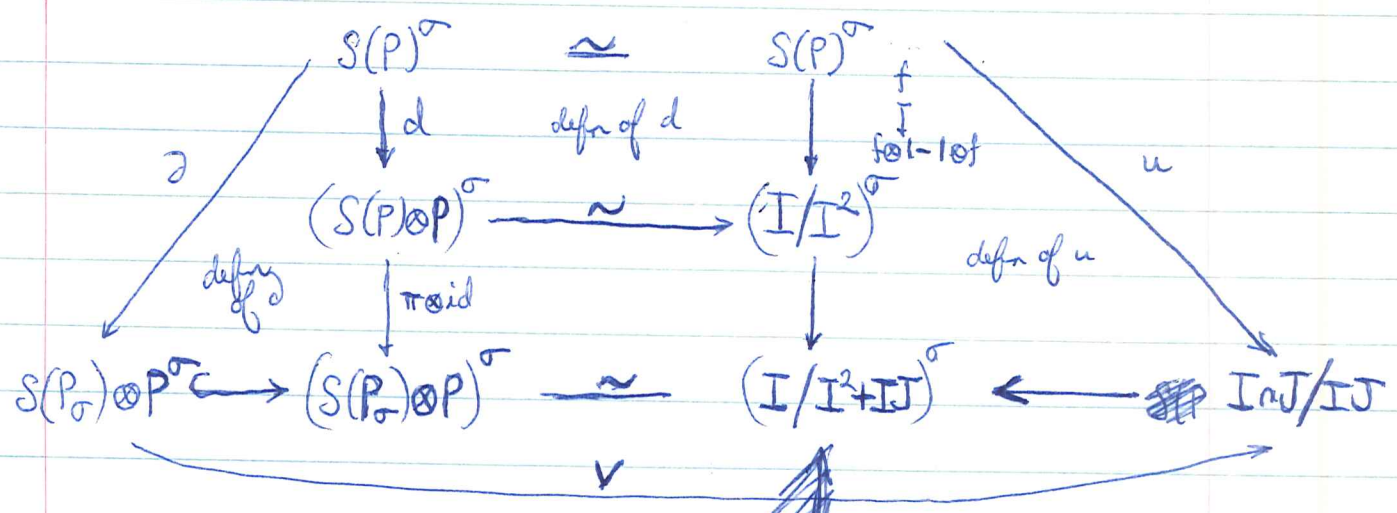 S(P)^σ ≃ S(P)^σ
f
∂ d defn of d ↧ u
f⊗1-1⊗f
(S(P)⊗P)^σ ~ (I/I²)^σ
defn of ∂ π⊗id defn of u
S(P_σ)⊗P^σ (S(P_σ)⊗P)^σ ~ (I/I²+IJ)^σ I∩J/IJ
v